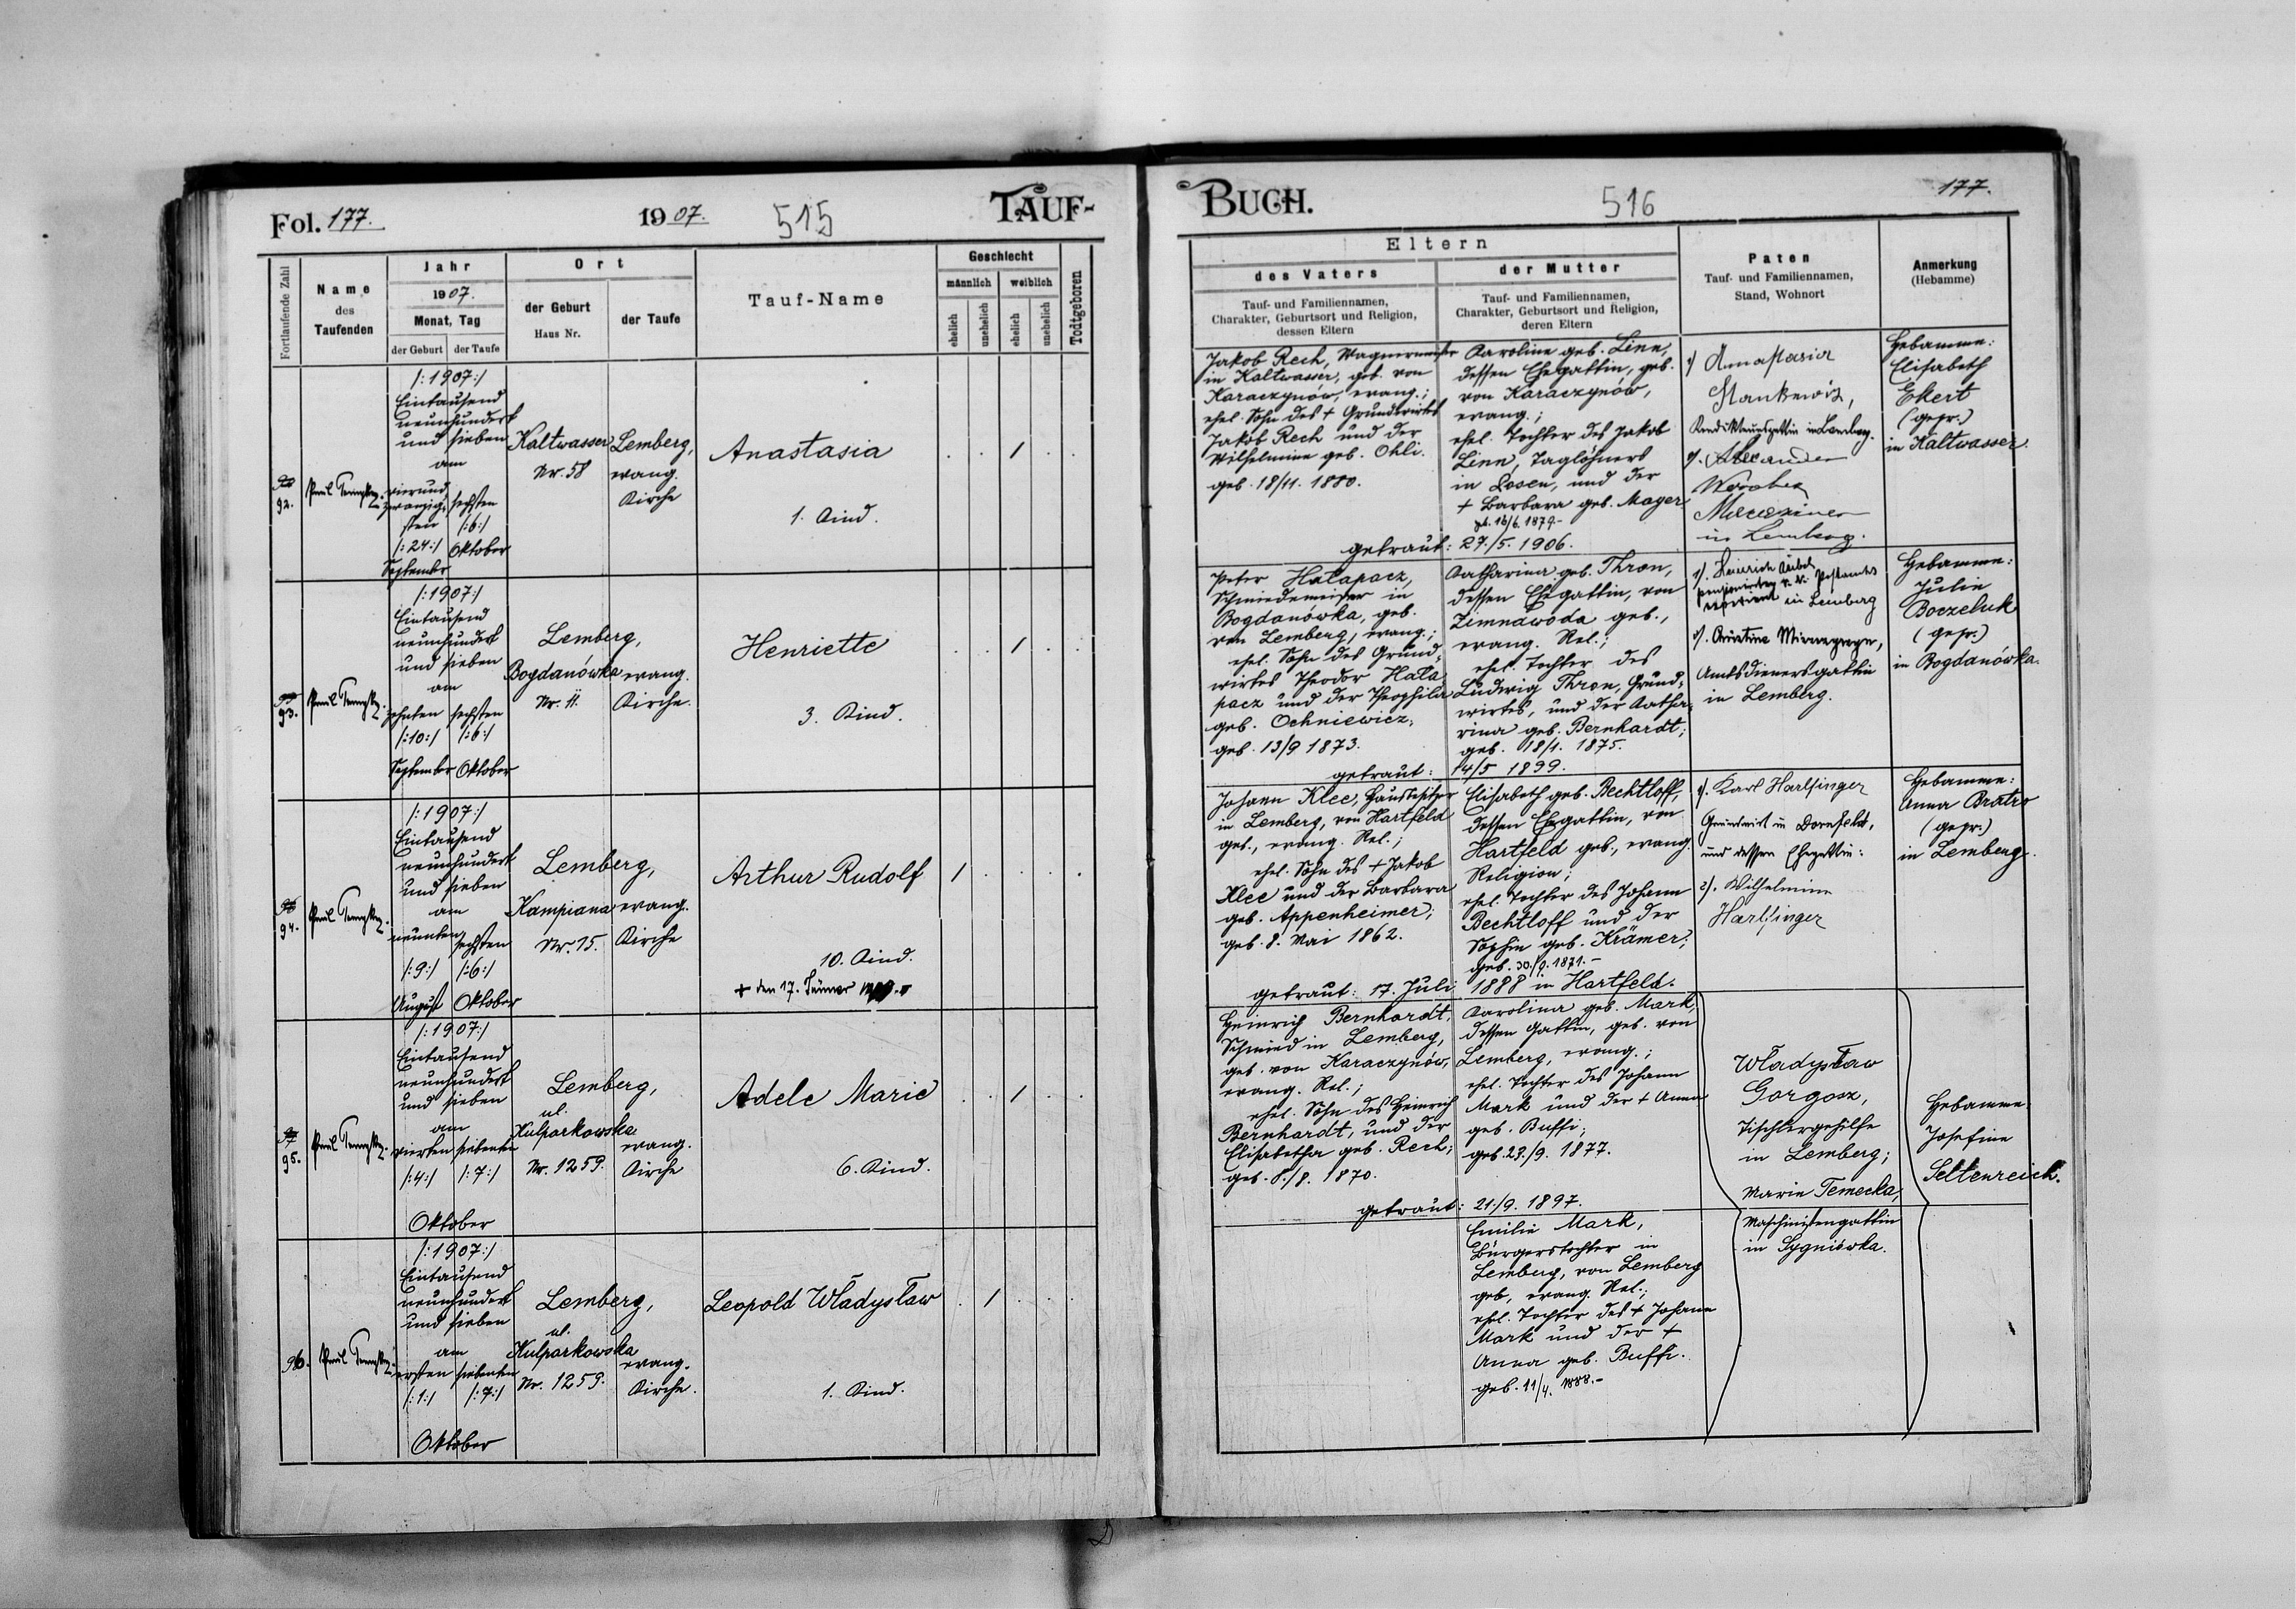 Fol. 177.
1907.
515
TAUF-
Fortlaufende Zahl
Name
des
Taufenden
Jahr
1907.
Monat, Tag
der Geburt
der Taufe
Ort
der Geburt
Haus Nr.
der Taufe
Tauf-Name
Geschlecht
männlich
weiblich
ehelich
unehelich
ehelich
unehelich
Todtgeboren
92.
Paul
/:1907:/
Eintausend
neunhundert
und sieben
am
vierund
zwanzig-
sten
/:24:/
September
sechsten
/:6:/
Oktober
Kaltwasser
Nr. 58
Lemberg,
evang.
Kirche
Anastasia
1. Kind.
93.
Paul
/:1907:/
Eintausend
neunhundert
und sieben
am
zehnten
/:10:/
September
sechsten
/:6:/
Oktober
Lemberg,
Bogdanówka
Nr. 11.
evang.
Kirche.
Henriette
3. Kind.
94.
Paul
/:1907:/
Eintausend
neunhundert
und sieben
am
neunten
/:9:/
August
sechsten
/:6:/
Oktober
Lemberg,
Kampiana
Nr. 15.
evang.
Kirche
Arthur Rudolf
10. Kind.
+ den 17. Jänner
95.
Paul
/:1907:/
Eintausend
neunhundert
und sieben
am
vierten
/:4:/
siebenten
/:7:/
Oktober
Lemberg,
ul.
Kulparkowska
Nr. 1259.
evang.
Kirche
Adele Marie
6. Kind.
96.
Paul
/:1907:/
Eintausend
neunhundert
und sieben
am
ersten
/:1:/
siebenten
/:7:/
Oktober
Lemberg,
ul.
Kulparkowska
Nr. 1259.
evang.
Kirche.
Leopold Władysław
1. Kind.
BUCH.
516
177.
Eltern
des Vaters
Tauf- und Familiennamen,
Charakter, Geburtsort und Religion,
dessen Eltern
der Mutter
Tauf- und Familiennamen,
Charakter, Geburtsort und Religion,
deren Eltern
Paten
Tauf- und Familiennamen,
Stand, Wohnort
Anmerkung
(Hebamme)
Jakob Rech, Wagnermeister
in Kaltwasser, geb. von
Karaczynów, evang.;
ehel. Sohn des + Grundwirtes
Jakob Rech und der
Wilhelmine geb. Ohli.
geb. 18/11. 1880.
Karoline geb. Linn,
dessen Ehegattin, geb.
von Karaczynów,
evang.;
ehel. Tochter des Jakob
Linn, Taglöhners
in Posen, und der
+ Barbara geb. Mayer
geb. 16/6. 1879.-
getraut: 27./5. 1906.
1) Anastasia
Stankewicz,
in Lemberg.
2). Alexander
in Lemberg.
Hebamme:
Elisabeth
Ekert
(gepr.)
in Kaltwasser.
Peter Hałapacz,
Schmiedemeister in
Bogdanówka, geb.
von Lemberg, evang.;
ehel. Sohn des Grund-
wirtes Theodor Hała-
pacz und der Theophila
geb. Ochniewicz;
geb. 13/9 1873.
Katharina geb. Thron,
dessen Ehegattin, von
Zimnawoda geb.,
evang. Rel.;
ehel. Tochter des
Ludwig Thron, Grund-
wirtes, und der Katha-
rina geb. Bernhardt;
geb. 18/1. 1875.
getraut: 14/5 1899.
1). Heinrich
in Lemberg
2). Christine
Amtsdienersgattin
in Lemberg.
Hebamme:
Julie
Boczeluk
(gepr.)
in Bogdanówka.
Johann Klee, Hausbesitzer
in Lemberg, von Hartfeld
geb., evang. Rel.;
ehel. Sohn des + Jakob
Klee und der Barbara
geb. Appenheimer;
geb. 8. Mai 1862.
Elisabeth geb. Bechtloff,
dessen Ehegattin, von
Hartfeld geb., evang.
Religion;
ehel. Tochter des Johann
Bechtloff und der
Sophie geb. Krämer;
geb. 30./9. 1871.-
getraut: 17. Juli 1888 in Hartfeld.
1). Karl Harlfinger
Grundwirt in Dornfeld,
und dessen Ehegattin:
2). Wilhelmine
Harlfinger
Hebamme:
Anna Bratro
(gepr.)
in Lemberg.
Heinrich Bernhardt,
Schmied in Lemberg,
geb. von Karaczynów,
evang. Rel.;
ehel. Sohn des Heinrich
Bernhardt, und der
Elisabetha geb. Rech;
geb. 8./8. 1870.
Karolina geb. Mark,
dessen Gattin, geb. von
Lemberg, evang.;
ehel. Tochter des Johann
Mark und der + Anna
geb. Buffi;
geb. 23./9. 1877.
getraut: 21./9. 1897.
Władysław
Gorgosz,
Tischlergehilfe
in Lemberg;
Marie Temecka,
Maschinistengattin
in Sygniówka.
Hebamme:
Josefine
Seltenreich.
Emilie Mark,
Bürgerstochter in
Lemberg, von Lemberg
geb., evang. Rel.;
ehel. Tochter des + Johann
Mark und der +
Anna geb. Buffi.
geb. 11/4. 1888.-